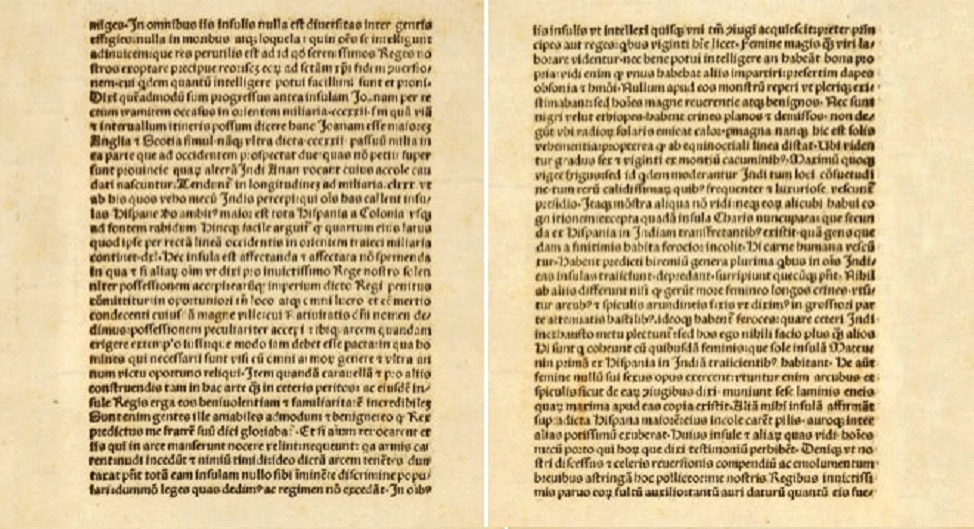 miges. In omnibus iis insulis nulla est diuersitas inter gentis
effigies: nulla in moribus atq; loquela: quin oẽs se intelligunt
adinuicem: que res perutilis est ad id qđ serenissimos Reges no
stros exoptare precipue reor: scz eoꝝ ad sctãm xp̃i fidem cõuersio-
nem: cui qdem quantũ intelligere potui facillimi sunt et proni.
Dixi quẽadmodũ sum progressus antea insulam Joãnam per re
ctum tramitem occasus in orientem miliaria.cccxxii. sm̃ quã viã
⁊ interuallum itineris possum dicere hanc Joanam esse maiorẽ
Anglia ⁊ Scotia simul. nãq; vltra dicta.cccxxii. passuũ milia in
ea parte que ad occidentem prospectat due: quas nõ petii: super
sunt prouincie quaꝝ alterã Indi Anan vocant cuius accole cau
dati nascuntur. Tendunt̃ in longitudinẽ ad miliaria.clxxx. vt
ab his quos veho mecũ Indis percepi: qui oẽs has callent insu/
las Hispane vo ambit⁹ maior est tota Hispania a Colonia vsq;
ad fontem rabidum Hincq; facile arguit̃ q quartum eius latus
quod ipse per rectã lineã occidentis in orientem traieci miliaria
continet.dxl. Hec insula est affectanda ⁊ affectata nõ spernenda
in qua ⁊ si aliaꝝ oĩm vt dixi pro inuictissimo Rege nostro solen
niter possessionem accepi: earũq; imperium dicto Regi penitus
cõmittitur: in oportuniori tñ loco atq; omni lucro et cõmertio
condecenti cuiusdã magne ville: cui Natiuitatis dñi nomen de/
dimus: possessionem peculiariter accepi: ibiq; arcem quandam
erigere extemplo iussi: que modo iam debet esse pacta: in qua ho
mines qui necessarii sunt visi cũ omni armoꝝ genere ⁊ vltra an
num victu oportuno reliqui. Item quandã carauellã ⁊ pro aliis
construendis tam in hac arte q̃ in ceteris peritos: ac eiusdẽ in/
sule Regis erga eos beniuolentiam ⁊ familiaritatẽ incredibilẽ
Sunt enim gentes ille amabiles admodum ⁊ benigne: eo q Rex
predictus me fratrẽ suũ dici gloriabat̃. Et si aĩum reuocarent et
iis qui in arce manserunt nocere velint: nequeunt: qa armis ca/
rent: nudi incedũt ⁊ nimiũ timidi: ideo dictã arcem tenẽtes dun
taxat pñt totã eam insulam nullo sibi ĩminẽte discrimine popu/
lari: dummõ leges quas dedim⁹ ac regimen nõ excedãt. In oib⁹
iis insulis vt intellexi quisq; vni tm̃ ꝯiugi acquiescit: preter prin
cipes aut reges: qbus viginti hr̃e licet. Femine magis q̃ viri la/
borare videntur: nec bene potui intelligere an habeãt bona pro
pria: vidi enim q vnus habebat aliis impartiri: presertim dapes
obsonia ⁊ hmõi. Nullum apud eos monstrũ reperi vt pleriq; exi/
stimabant: sed hoĩes magne reuerentie atq; benignos. Nec sunt
nigri velut ethiopes: habent crines planos ⁊ demissos. non de/
gũt vbi radioꝝ solaris emicat calor. permagna nanq; hic est solis
vehementia: propterea q ab equinoctiali linea distat. Vbi viden
tur gradus sex ⁊ viginti ex montiũ cacuminib⁹. Maximũ quoq;
viget frigus: sed id qdem moderantur Indi tum loci cõsuetudi
ne: tum rerũ calidissimaꝝ quib⁹ frequenter ⁊ luxuriose vescunt̃
presidio. Itaq; mõstra aliqua nõ vidi: neq; eoꝝ alicubi habui co
gnitionem: excepta quadã insula Charis nuncupata: que secun
da ex Hispania in Indiam transfretantib⁹ existit. quã gens que
dam a finitimis habita ferocior incolit. Hi carne humana vescũ
tur. Habent predicti biremiũ genera plurima qbus in oẽs Indi
cas insulas traiiciunt: depredant: surripiunt quecũq; pñt. Nihil
ab aliis differunt nisi q gerũt more femineo longos crines: vtũ
tur arcub⁹ ⁊ spiculis arundineis fixis vt dixim⁹ in grossiori par
te attenuatis hastilib⁹. ideoq; habent̃ feroces: quare ceteri Indi
inexhausto metu plectunt̃: sed hos ego nihili facio plus q̃ alios
Hi sunt q coeunt cũ quibusdã feminis: que sole insulã Mateu
nin primã ex Hispania in Indiã traiicientib⁹ habitant. He aũt
femine nullũ sui sexus opus exercent: vtuntur enim arcubus et
spiculis sicut de eaꝝ ꝯiugibus dixi. muniunt sese laminis eneis
quaꝝ maxima apud eas copia existit. Aliã mihi insulã affirmãt
supradicta Hispana maiorẽ: eius incole carẽt pilis. auroq; inter
alias potissimũ exuberat. Huius insule ⁊ aliaꝝ quas vidi hoĩes
mecũ porto qui hoꝝ que dixi testimoniũ perhibẽt. Deniq; vt no-
stri discessus ⁊ celeris reuersionis compendiũ ac emolumentum
breuibus astringã hoc polliceor: me nostris Regibus inuictissi
mis paruo eoꝝ fultũ auxilio: tantũ auri daturũ quantũ eis fue/